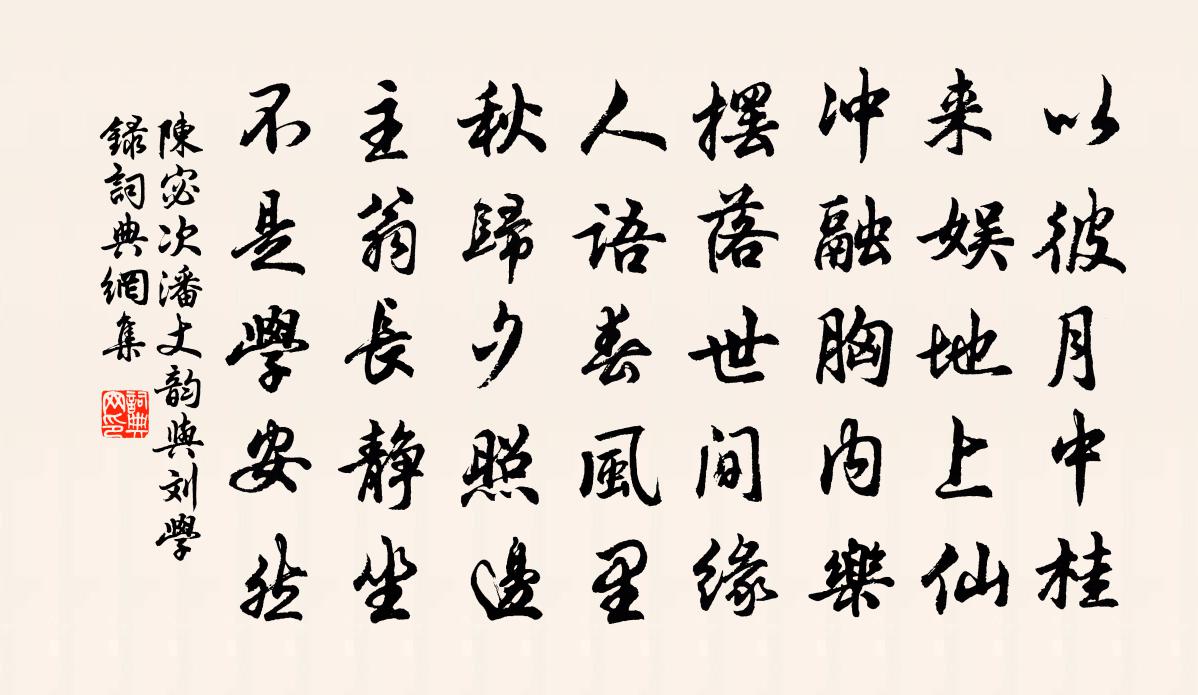 以彼月中桂
来娱地上仙
冲融胸内樂
擺落世间缘
人语春風里
秋歸夕照邊
主翁長静坐
不是學安然
陳宓次潘丈韵與刘學
録詞典網集
詞典网印